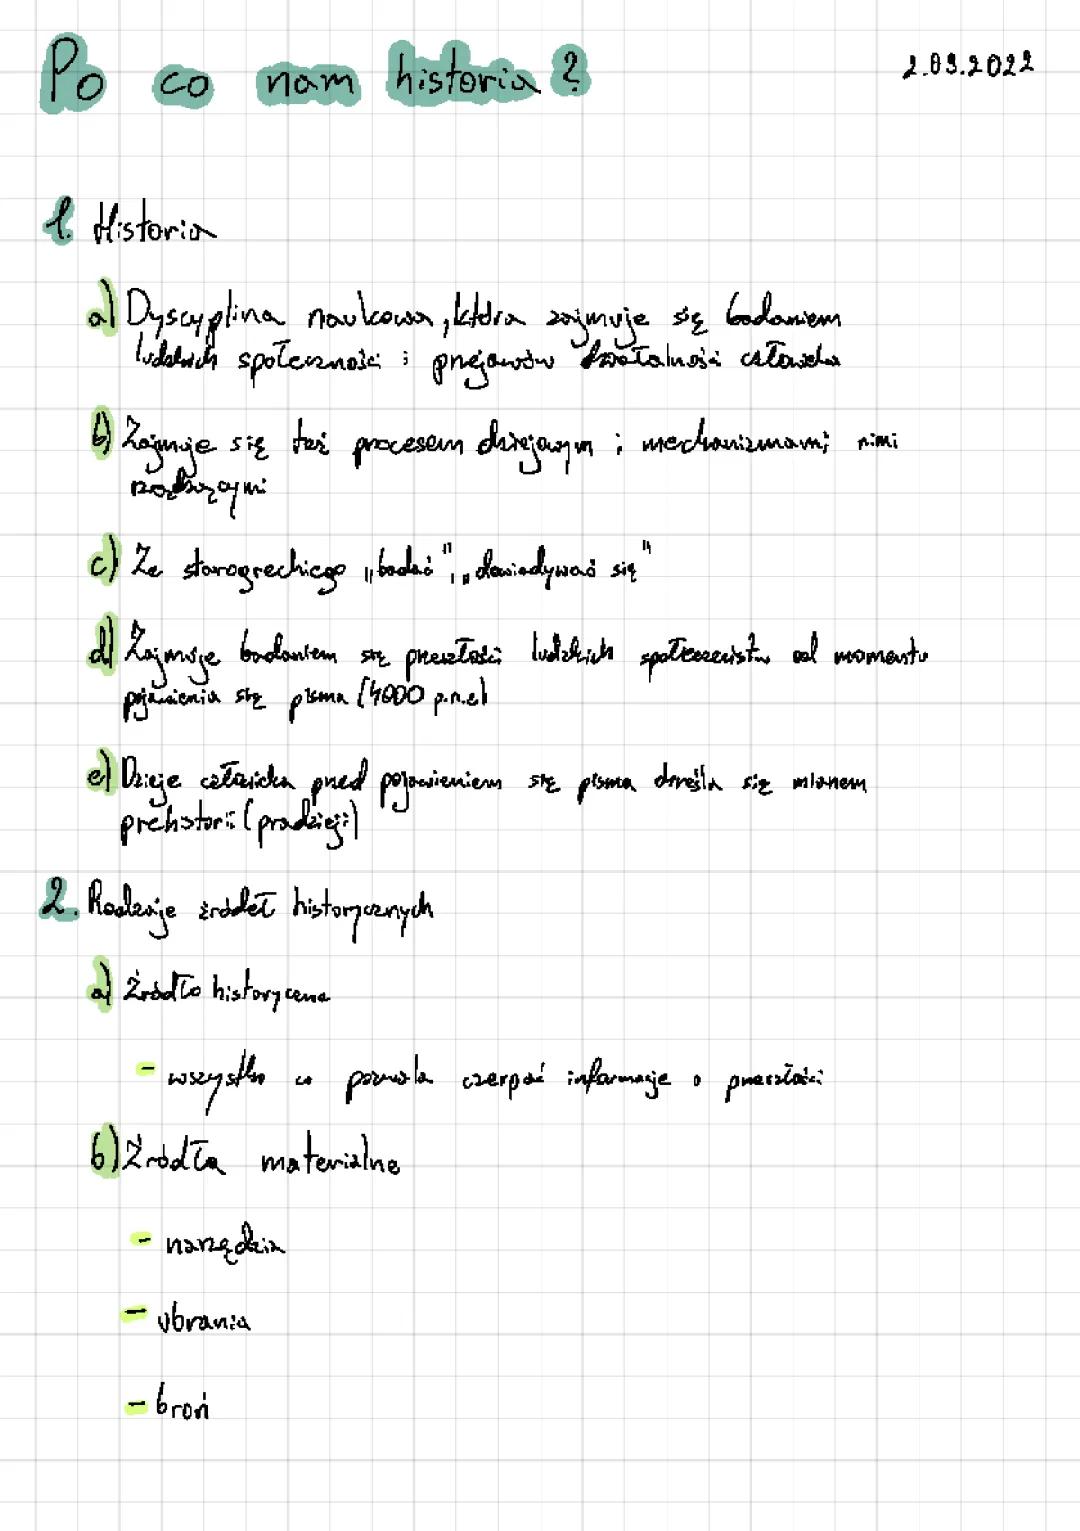 Po co nam historia?
2.09.2022
1. Historia
a) Dyscyplina naukowa, która zajmuje się badaniem
ludzkich społeczności i przejawów działalności człowieka
b) Zajmuje się też procesem dziejowym i mechanizmami nimi
rządzącymi
c) Ze starogreckiego „badać", „dowiadywać się"
d) Zajmuje badaniem się przeszłości ludzkich społeczeństw od momentu
pojawienia się pisma (4000 p.n.e)
e) Dzieje człowieka przed pojawieniem się pisma określa się mianem
prehistorii (pradziejii)
2. Rodzaje źródeł historycznych
a) Źródło historyczne
- wszystko co pozwala czerpać informacje o przeszłości
b) Źródła materialne
- narzędzia
- ubrania
- broń